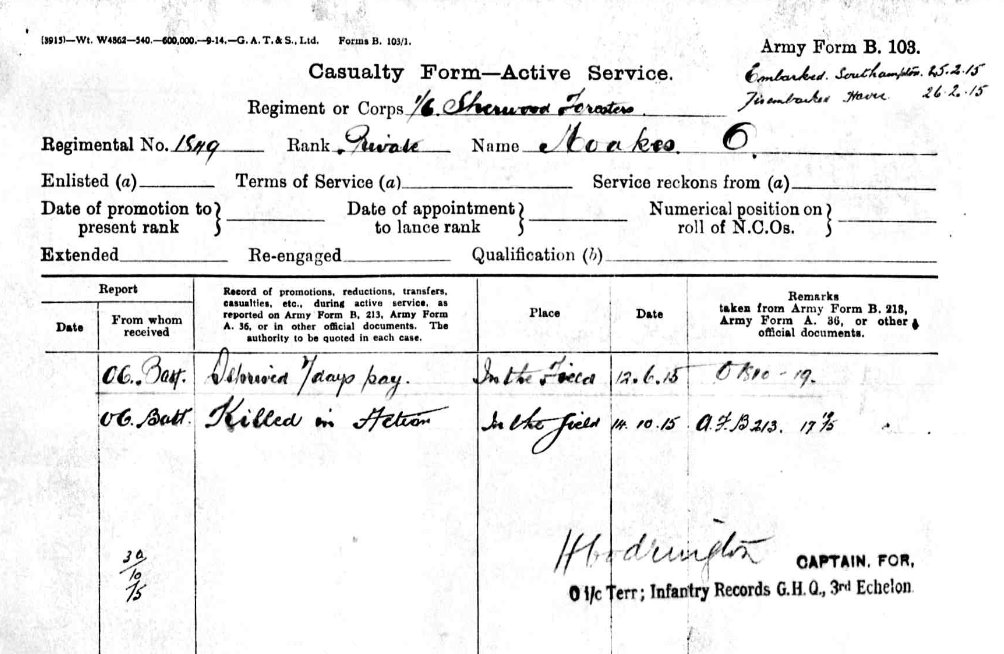 (3915)—Wt. W4862—540.—600,000.—9-14.—G. A. T. & S., Ltd. Forms B. 103/1.
Army Form B. 103.
Casualty Form—Active Service.
Embarked. Southampton. 25.2.15
Disembarked Havre 26.2.15
Regiment or Corps 1/6. Sherwood Foresters
Regimental No. 1549 Rank Private Name Noakes. O.
Enlisted (a) Terms of Service (a) Service reckons from (a)
Date of promotion to present rank } Date of appointment to lance rank } Numerical position on roll of N.C.Os. }
Extended Re-engaged Qualification (b)
Report
Date
From whom received
Record of promotions, reductions, transfers, casualties, etc., during active service, as reported on Army Form B, 213, Army Form A. 36, or in other official documents. The authority to be quoted in each case.
Place
Date
Remarks taken from Army Form B. 213, Army Form A. 36, or other official documents.
OC. Batt. Deprived 7 days pay. In the Field 12.6.15
OC. Batt. Killed in Action In the field 14.10.15 A.F.B 213.
30/10/15
CAPTAIN, FOR,
O i/c Terr; Infantry Records G.H.Q., 3rd Echelon